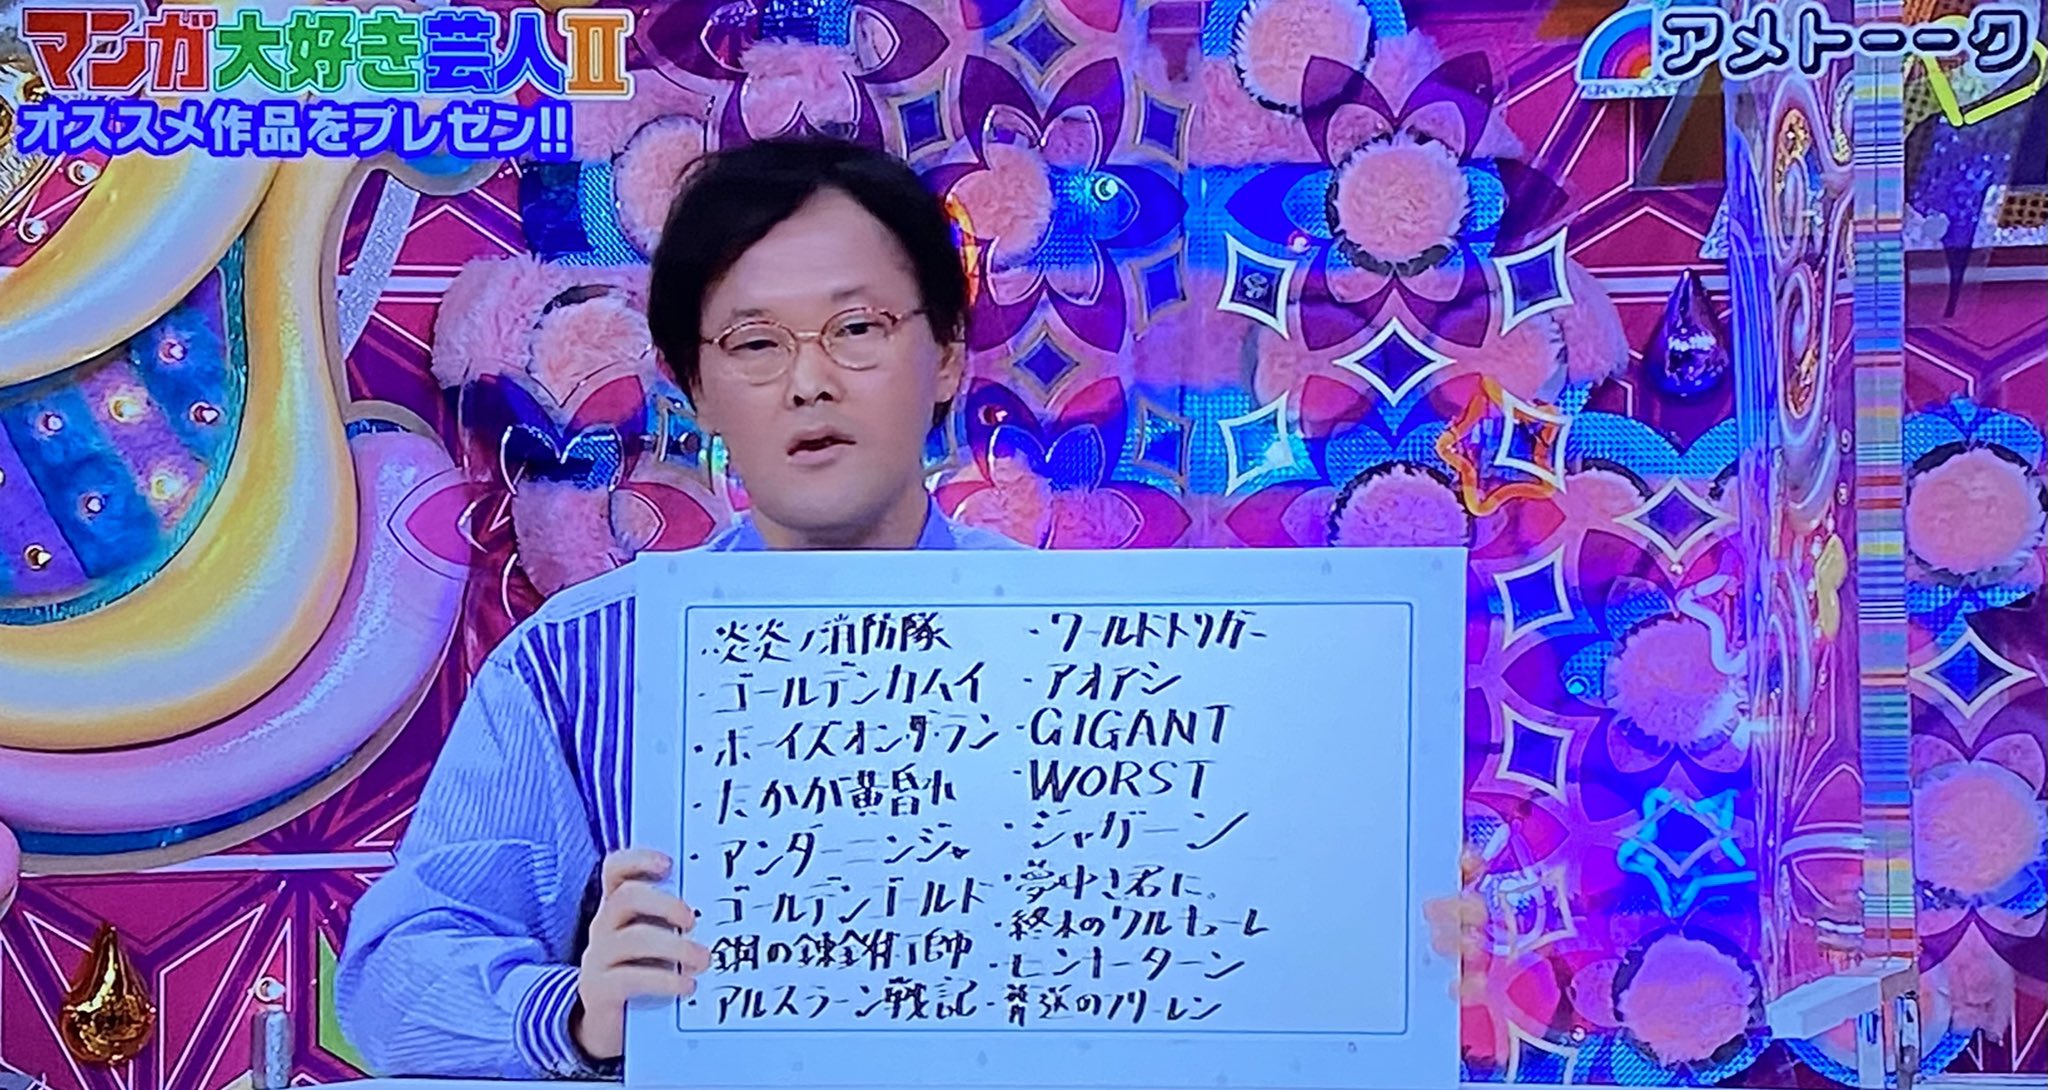 マンガ大好き芸人II
オススメ作品をプレゼン!!
アメトーーク
・炎炎ノ消防隊
・ゴールデンカムイ
・ボーイズオンザ・ラン
・たかが黄昏れ
・アンダーニンジャ
・ゴールデンゴールド
鋼の錬金術師
・アルスラーン戦記
・ワールドトリガー
・アオアシ
・GIGANT
・WORST
・ジャガーン
・夢中さ君に。
・終末のワルキューレ
・ヒンナーターン
・葬送のフリーレン